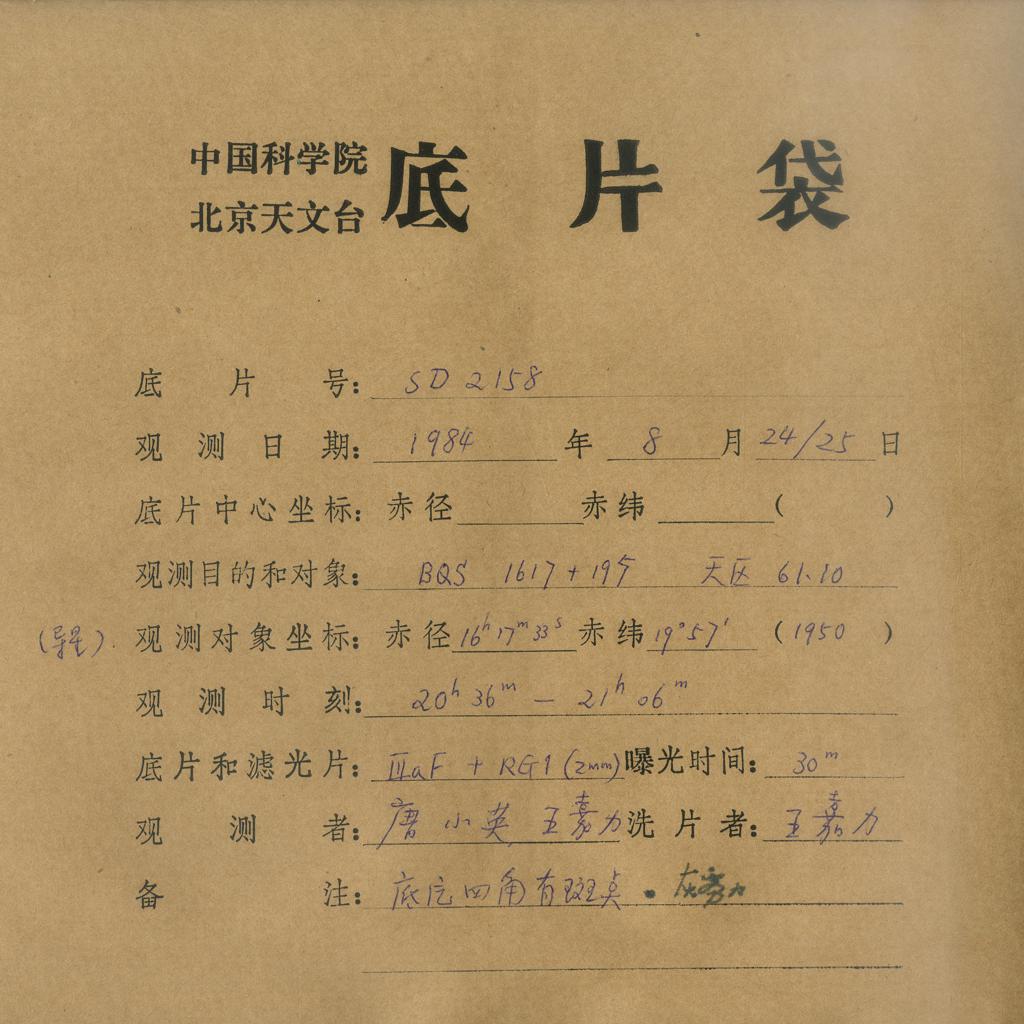 中国科学院
北京天文台
底片袋
底片号: SD 2158
观测日期: 1984 年 8 月 24/25 日
底片中心坐标: 赤径 赤纬 ( )
观测目的和对象: BQS 1617+195 天区 61.10
(导星) 观测对象坐标: 赤径 16ʰ17ᵐ33ˢ 赤纬 19°57′ (1950)
观测时刻: 20ʰ36ᵐ — 21ʰ06ᵐ
底片和滤光片: ⅢaF + RG1 (2mm) 曝光时间: 30ᵐ
观测者: 唐小英 王嘉力 洗片者: 王嘉力
备注: 底片四角有斑点.